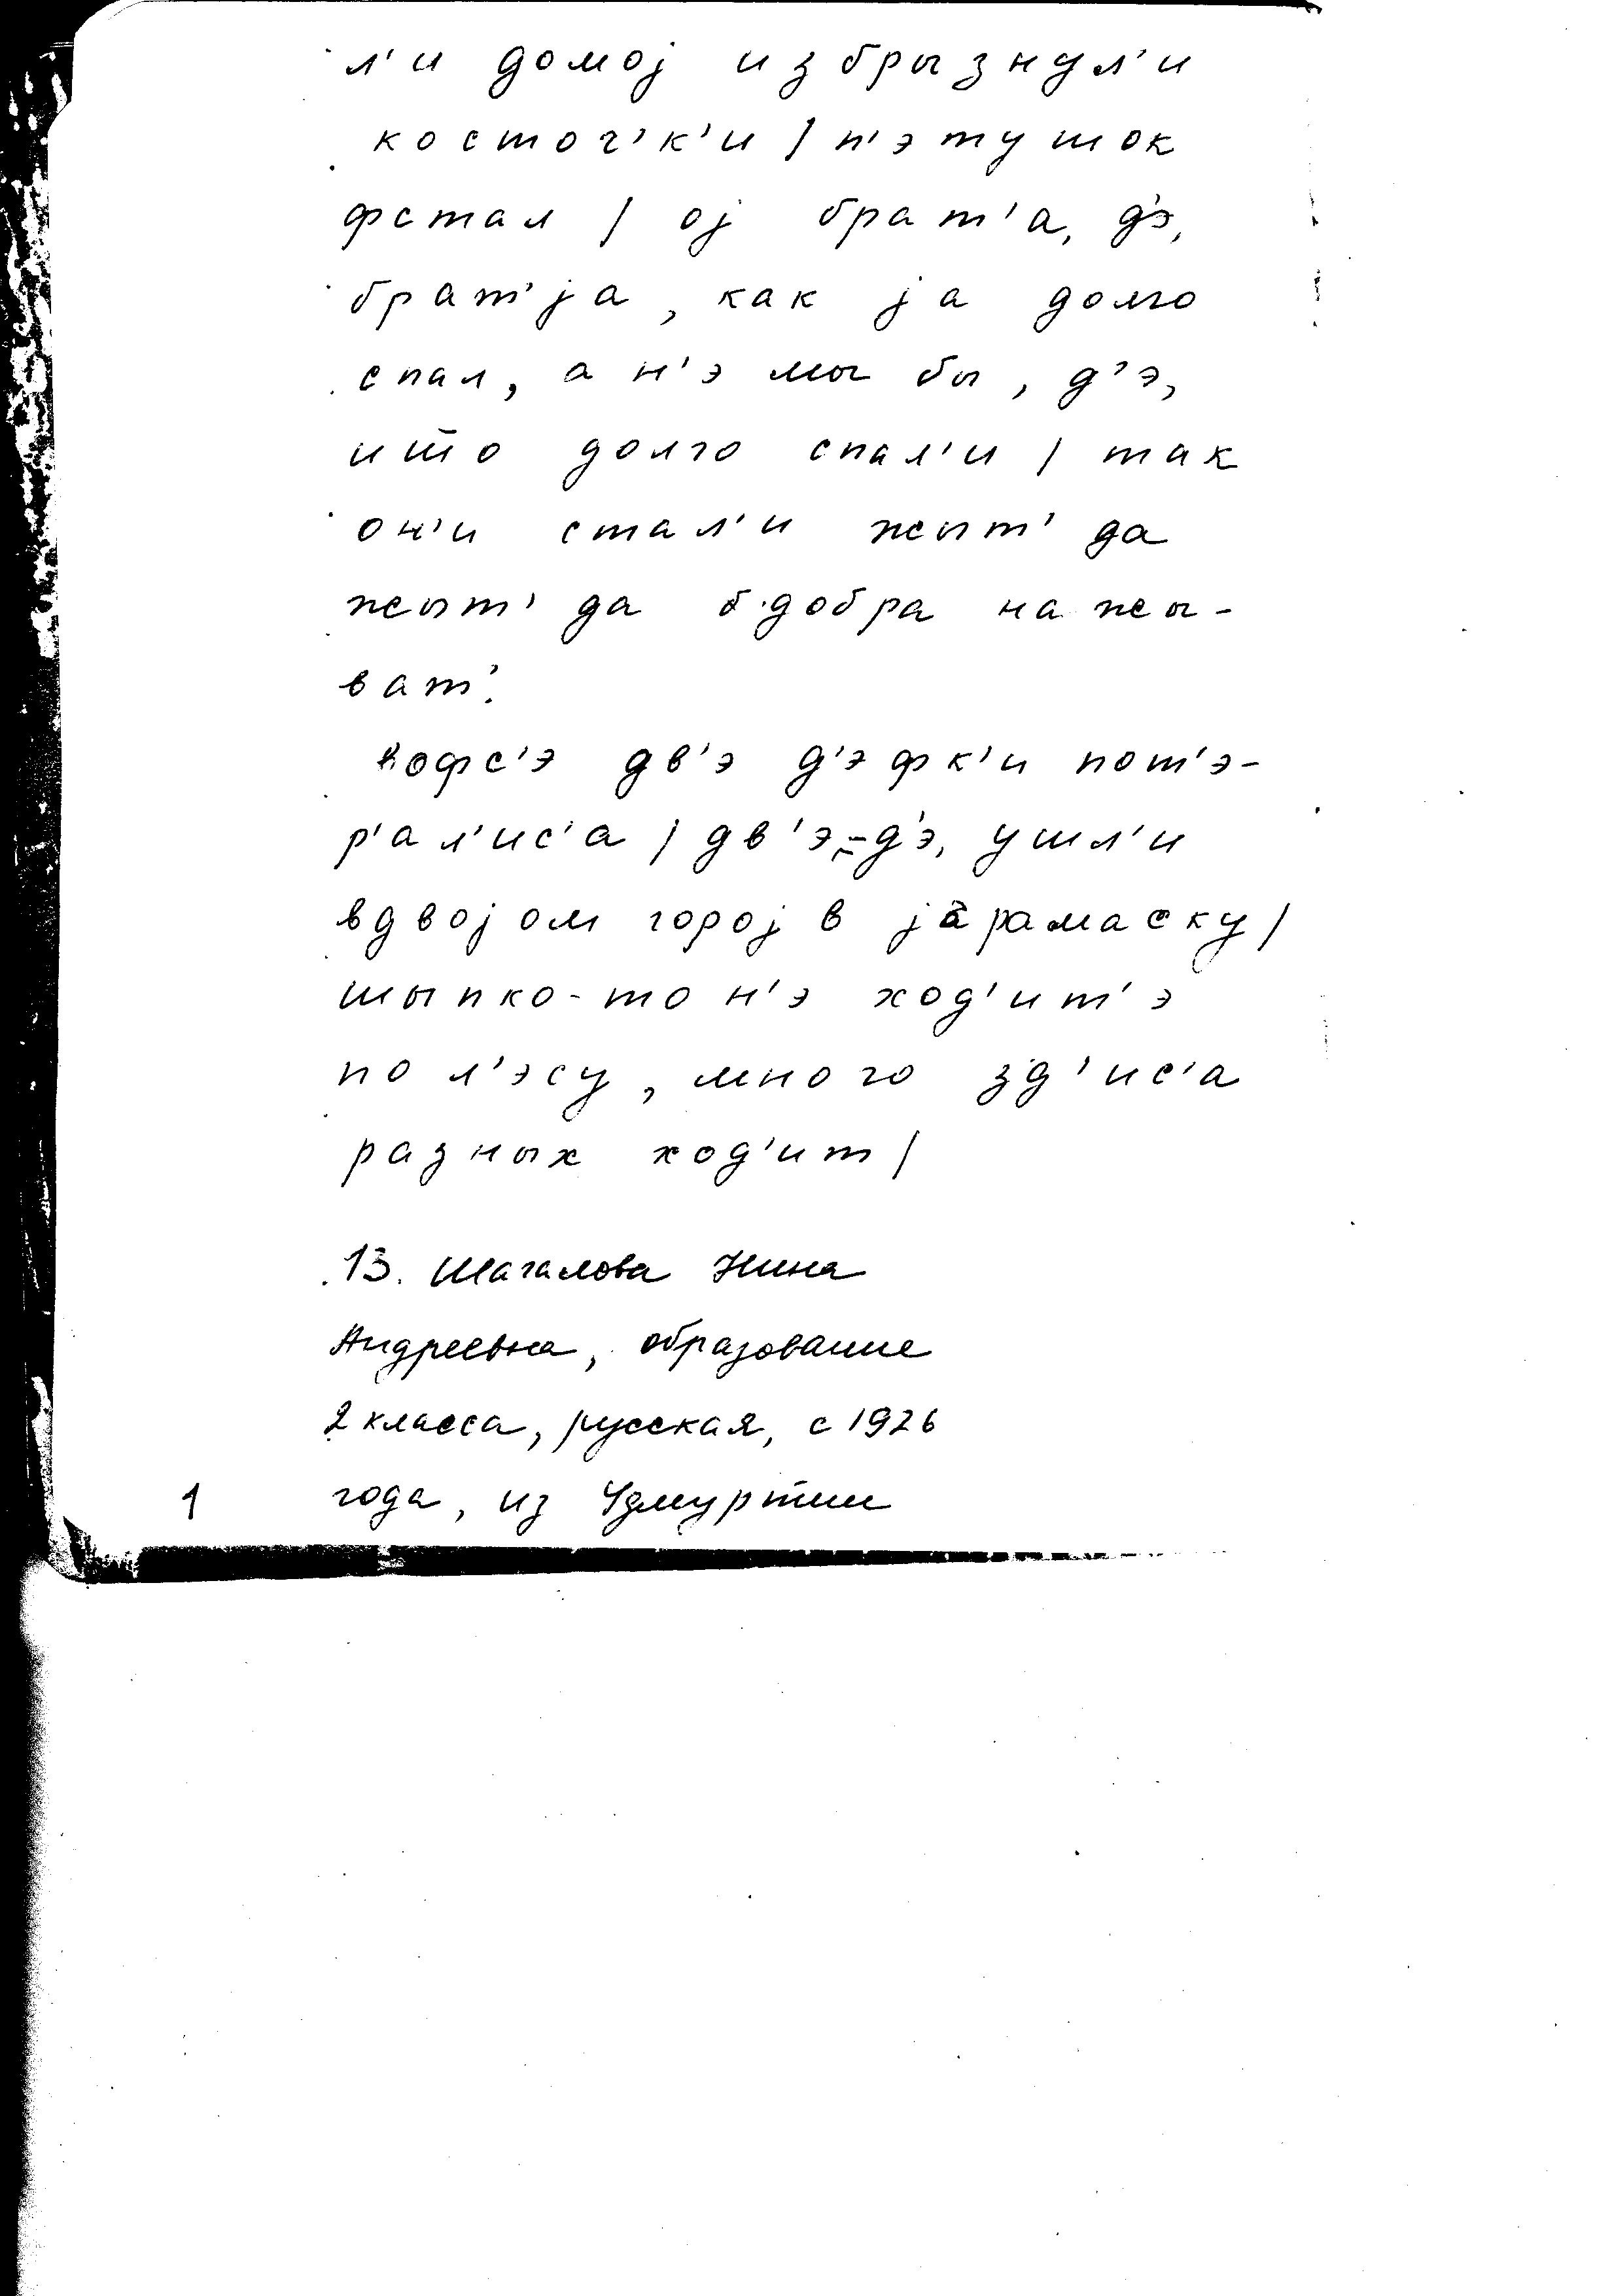 л'и домој избрызнул'и
косточ'к'и / п'этушок
фстал / ој брат'а, д'э,
брат'jа, как jа долго
спал, а н'э мы бы, д'э,
ишо долго спал'и / так
он'и стал'и жыт' да
жыт' да б·добра нажы-
ват'.
вофс'э дв'э д'эфк'и пот'э-
р'ал'ис'а / дв'э, д'э, ушл'и
вдвоjом гороj в jарамаску /
шыпко-то н'э ход'ит'э
по л'эсу, много зд'ис'а
разных ход'ит /
13. Шагалова Нина
Андреевна, образование
2 класса, русская, с 1926
года, из Удмуртии
1